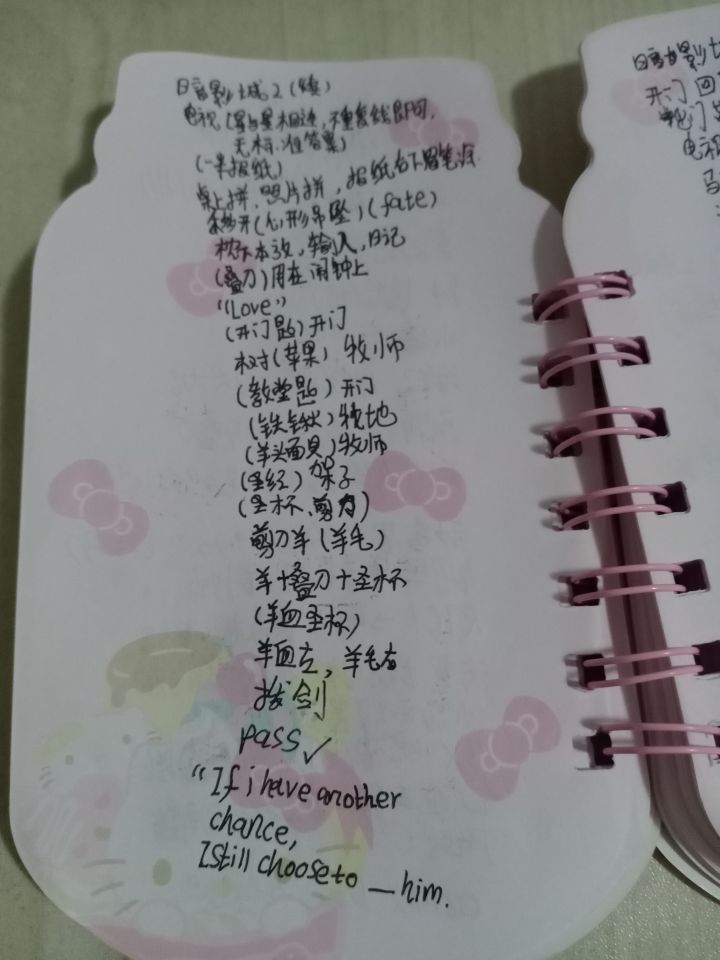 暗影火城2(续)
电视(星与星相连,不重复线即可,
无标准答案)
(一半报纸)
桌上拼,照片拼,报纸右下眉笔涂
移开(心形吊坠)(fate)
枕下本放,输入,日记
(叠刀)用在闹钟上
"Love"
(开门匙)开门
树(苹果) 牧师
(教堂匙) 开门
(铁锹)挖地
(羊头面具)牧师
(圣经)架子
(圣杯、剪刀)
剪刀羊(羊毛)
羊+叠刀+圣杯
(羊血圣杯)
羊血左,羊毛右
拔剑
pass✓
"If i have another
chance,
I still choose to __ him.
开门回
电视
马